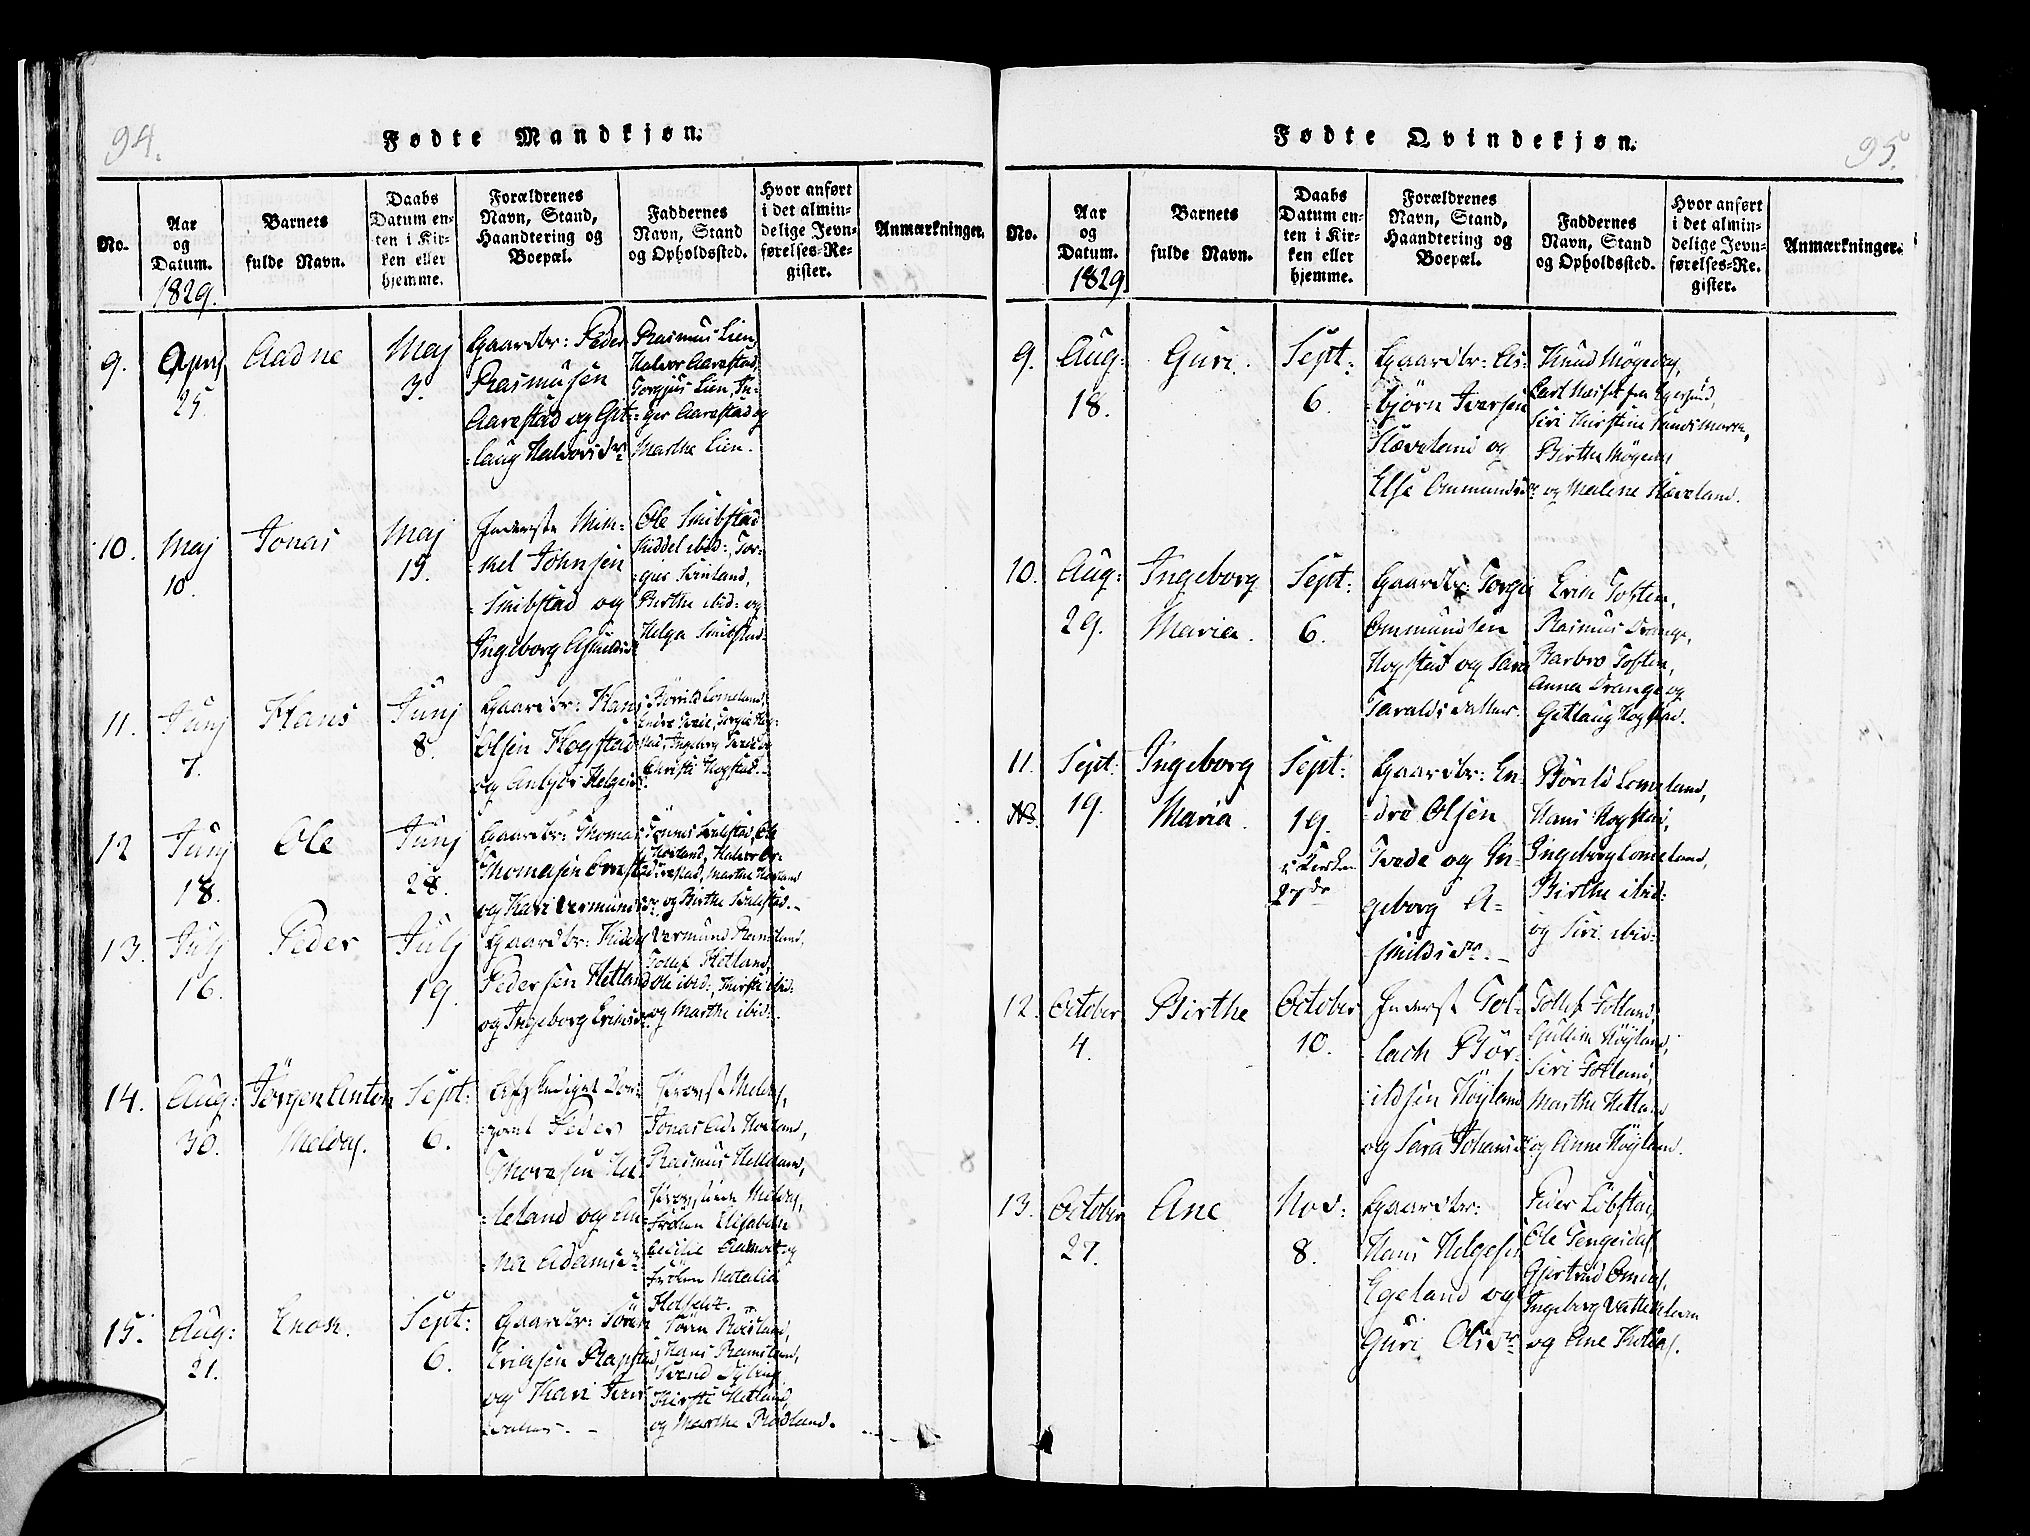 94.
Fødte Mandkjøn.
No.
Aar
og
Datum.
1829.
Barnets
fulde Navn.
Daabs
Datum en-
ten i Kir-
ken eller
hjemme.
Forældrenes
Navn, Stand,
Haandtering og
Boepæl.
Faddernes
Navn, Stand
og Opholdssted.
Hvor anført
i det almin-
delige Jevn-
førelses-Re-
gister.
Anmærkninger.
9.
April
25.
Aadne
Maj
3.
Gaardbr: Peder
Rasmusen
Aarestad og Git-
-laug Halvorsdr
Rasmus Lien,
Halvor Aarestad,
Torgjus Lien, In-
-ger Aarestad og
Marthe Lien.
10.
Maj
10.
Jonas
Maj
15.
Inderste Mik-
-kel Johnsen
Skibstad og
Ingeborg
Ole Skibstad
Kiddel ibid:, Tor-
-gier
Birthe ibid: og
Helga Skibstad.
11.
Junj
7.
Hans
Junj
8.
Gaardbr: Hans
Olsen Hogstad
og Anbjør Helges
Børild Lomeland,
Endre Tvede, Torgie Hog-
stad, Ingeborg Tvede og
Christi Hogstad.-
12
Junj
18.
Ole
Junj
28.
Gaardbr: Thomas
Thomasen
og Kari Vermunds
Hoiland, Halvor
Marthe Hoiland
og Birthe
13.
Julj
16.
Peder
Julj
19.
Gaardbr: Kiddel
Pedersen Hetland
og Ingeborg Eriksdr
Vermund Ramsland,
Tollef Hetland,
Ole ibid:, Kirsti ibid:
og Marthe ibid:.
14.
Aug:
30.
Jørgen Anton
Meldal.
Sept:
6.
Afskediget
Peder
Thoresen Hel-
-leland og An-
-na Adamsdr
Provst Meldal,
Jonas Eide Hoeland,
Rasmus Helleland,
Provstinde Meldal,
Frøken Elisabeth
Cecilie og
Frøken Natalia
15.
Aug:
21.
Enok.
Sept:
6.
Gaardbr: Søren
Eriksen Rapstad
og Kari Ters
datter. -
Søren
Hans Ramsland,
Svend
Kirsti Hetland,
og Marthe Rødland.
Fødte Qvindekjøn.
95.
No.
Aar
og
Datum.
1829
Barnets
fulde Navn.
Daabs
Datum en-
ten i Kir-
ken eller
hjemme.
Forældrenes
Navn, Stand,
Haandtering og
Boepæl.
Faddernes
Navn, Stand
og Opholdssted.
Hvor anført
i det almin-
delige Jevn-
førelses-Re-
gister.
Anmærkninger.
9.
Aug:
18.
Guri.
Sept:
6.
Gaardbr: As-
-bjørn Iversen
Slæveland og
Else Ommundsdr
Knud Mögedal,
fra Egersund,
Siri Kirstine
Birthe Mögedal
og Malene Slæveland.
10.
Aug:
29.
Ingeborg
Maria.
Sept:
6.
Gaardbr: Torgier
Ommundsen
Hogstad og Sara
Taraldsdatter.
Erik Toften,
Rasmus Drange,
Barbro Toften,
Anna Drange og
Gitlaug Hogstad.
11.
Sept:
19.
Ingeborg
Maria.
Sept:
19.
i Kirken
27de
Gaardbr: En-
dre Olsen
Tvede og In-
geborg A-
skildsdr.-
Børild Lomeland,
Hans Hogstad,
Ingeborg Lomeland,
Birthe ibid:
og Siri ibid:
12.
October
4.
Birthe
October
10.
Inderst Tol-
-lach Bör-
-ildsen Höyland
og Sara Johansdr
Tollef Totland,
Gullik Höyland,
Siri Totland,
Marthe Hetland
og Anne Höyland.
13.
October
27.
Ane
Nov:
8.
Gaardbr:
Hans Helgesen
Egeland og
Guri Olsdr
Peder Löbstad,
Ole Tengesdal,
Gjertrud Omdal,
Ingeborg
og Ane